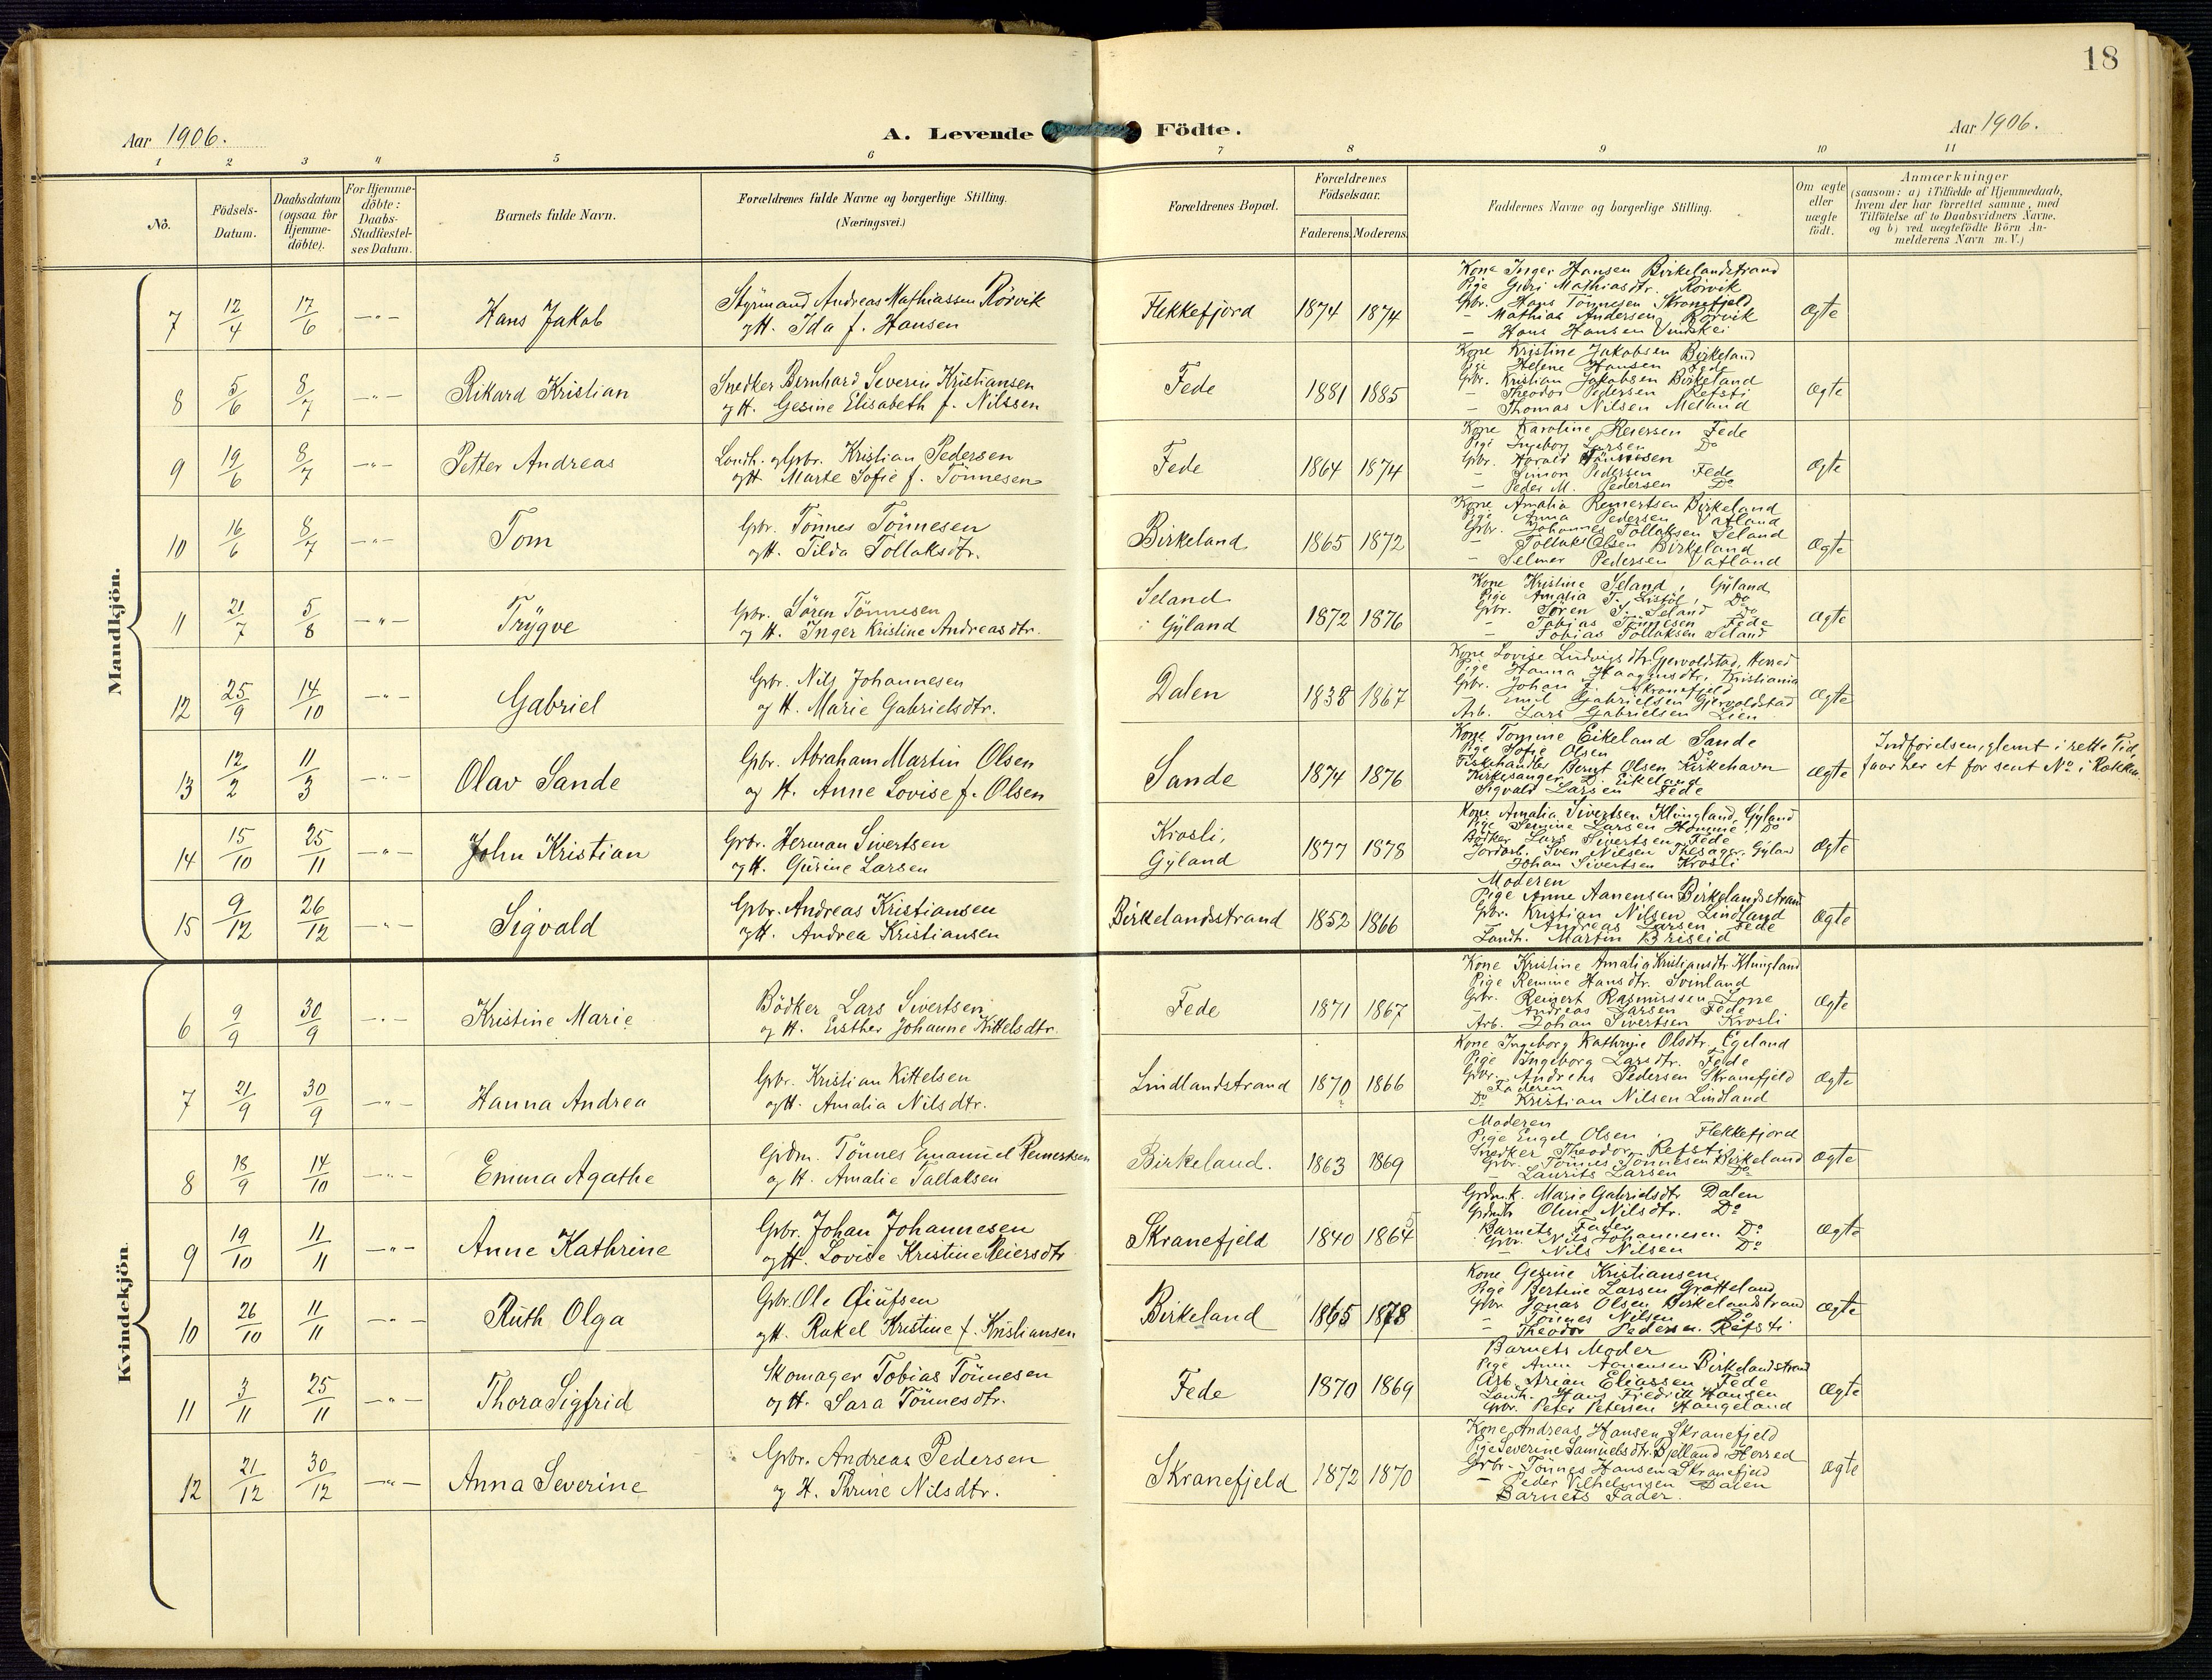 18
Aar 1906.
A. Levende Födte.
Aar 1906.
1 2 3 4 5 6 7 8 9 10 11
No.
Födsels-Datum.
Daabsdatum (ogsaa for Hjemme-döbte).
For Hjemme-döbte: Daabs-Stadfæstel-ses Datum.
Barnets fulde Navn.
Forældrenes fulde Navne og borgerlige Stilling.
(Næringsvei.)
Forældrenes Bopæl.
Forældrenes Födselsaar.
Faderens. Moderens.
Faddernes Navne og borgerlige Stilling.
Om ægte eller uægte födt.
Anmærkninger
(saasom: a) i Tilfælde af Hjemmedaab,
hvem der har forrettet samme, med
Tilföielse af to Daabsvidners Navne.
og b) ved uægtefödte Börn An-
melderens Navn m. V.)
Mandkjön.
7 12/4 17/6 —"— Hans Jakob
Styrmand Andreas Mathiassen Rörvik
og H. Ida f. Hansen
Flekkefjord 1874 1874
Kone Inger Hansen Birkelandstrand
Pige Guri Mathiasdtr. Rörvik
Gbr. Hans Tönnesen Skranefjeld
— Mathias Andersen Rörvik
— Hans Hansen
Ægte
8 5/6 8/7 —"— Rikard Kristian
Snedker Bernhard Severin Kristiansen
og H. Gesine Elisabeth f. Nilssen
Fede 1881 1885
Kone Kristine Jakobsen Birkeland
Pige Helene Hansen Fede
Gbr. Kristian Jakobsen Birkeland
— Theodor Pedersen Refsti
— Thomas Nilsen Meland
Ægte
9 19/6 8/7 —"— Petter Andreas
Landh. og Gbr. Kristian Pedersen
og H. Marte Sofie f. Tönnesen
Fede 1864 1874
Kone Karoline Reiersen Fede
Pige Ingeborg Larsen Do
Gbr. Harald Tönnesen
— Simon Pedersen Fede
— Peder M. Pedersen Do
Ægte
10 16/6 8/7 —"— Tom
Gbr. Tönnes Tönnesen
og H. Tilda Tollaksdtr.
Birkeland 1865 1872
Kone Amalia Reinertsen Birkeland
Pige Anna Pedersen Vatland
Gbr. Johannes Tollaksen Seland
— Tollak Olsen Birkeland
— Selmer Pedersen Vatland
Ægte
11 21/7 5/8 —"— Trygve
Gbr. Sören Tönnesen
og H. Inger Kristine Andreasdtr.
Seland
i Gyland 1872 1876
Kone Kristine Seland, Gyland
Pige Amalia T. Do
Gbr. Sören T. Seland Do
— Tobias Tönnesen Fede
— Tobias Tollaksen Seland
Ægte
12 25/9 14/10 —"— Gabriel
Gbr. Nils Johannesen
og H. Marie Gabrielsdtr.
Dalen 1838 1867
Kone Lovise Ludvigsdtr. Gjervoldstad, Herred
Pige Hanna Kristiania
Gbr. Johan J. Skranefjeld
— Emil Gabrielsen Gjervoldstad
Arb. Lars Gabrielsen Lien
Ægte
13 12/2 11/3 —"— Olav Sande
Gbr. Abraham Martin Olsen
og H. Anne Lovise f. Olsen
Sande 1874 1876
Kone Tomine Eikeland Sande
Pige Sofie Olsen Do
Fiskehandler Bernt Olsen Kirkehavn
Kirkesanger D. Eikeland
Sigvald Larsen Fede
Ægte
Indförelsen, glemt i rette Tid,
faar her et for sent No i Rækken.
14 15/10 25/11 —"— John Kristian
Gbr. Herman Sivertsen
og H. Gurine Larsen
Krosli,
Gyland 1877 1878
Kone Amalia Sivertsen Klungland, Gyland
Pige Semine Larsen Homme, Do
Bödker Lars Sivertsen Fede
Jordarb. Sven Nilsen Gyland
Johan Sivertsen Krosli
Ægte
15 9/12 26/12 —"— Sigvald
Gbr. Andreas Kristiansen
og H. Andrea Kristiansen
Birkelandsstrand 1852 1866
Moderen
Pige Anne Aanensen Birkelandsstrand
Gbr. Kristian Nilsen Lindland
— Andreas Larsen Fede
Landh. Martin Briseid
Ægte
Kvindekjön.
6 9/9 30/9 —"— Kristine Marie
Bödker Lars Sivertsen
og H. Esther Johanne Kittelsdtr.
Fede 1871 1867
Kone Kristine Amalia Kristiansdtr. Klungland
Pige Remine Hansdtr. Svinland
Gbr. Reinert Rasmussen Lone
— Andreas Larsen Fede
Arb. Johan Sivertsen Krosli
Ægte
7 21/9 30/9 —"— Hanna Andrea
Gbr. Kristian Kittelsen
og H. Amalia Nilsdtr.
Lindlandstrand 1870 1866
Kone Ingeborg Kathrine Olsdtr. Egeland
Pige Ingeborg Larsdtr. Fede
Gbr. Andreas Pedersen Skranefjeld
Faderen
Do Kristian Nilsen Lindland
Ægte
8 18/9 14/10 —"— Emma Agathe
Grdm. Tönnes Emanuel Reinertsen
og H. Amalie Tallaksen
Birkeland. 1863 1869
Moderen
Pige Engel Olsen Flekkefjord
Snedker Theodor Refsti
Gbr. Tönnes Tönnesen Birkeland
— Laurits Larsen Do
Ægte
9 19/10 11/11 —"— Anne Kathrine
Gbr. Johan Johannesen
og H. Lovise Kristine Reiersdtr
Skranefjeld 1840 1864 5
Grdmk. Marie Gabrielsdtr Dalen
Grdmdtr Oline Nilsdtr. Do
Barnets Fader
Gbr. Nils Johannesen Do
— Nils Nilsen Do
Ægte
10 26/10 11/11 —"— Ruth Olga
Gbr. Ole
og H. Rakel Kristine f. Kristiansen
Birkeland 1865 1878
Kone Gesine Kristiansen
Pige Bertine Larsen Grötteland
Gbr. Jonas Olsen Birkelandstrand
— Tönnes Nilsen Do
— Theodor Pedersen Refsti
Ægte
11 3/11 25/11 —"— Thora Sigfrid
Skomager Tobias Tönnesen
og H. Sara Tönnesdtr.
Fede 1870 1869
Barnets Moder
Pige Anne Aanensen Birkelandstrand
Arb. Arian Eliassen Fede
Landh. Hans Fredrik Hansen
Gbr. Peter Petersen Haugeland
Ægte
12 21/12 30/12 —"— Anna Severine
Gbr. Andreas Pedersen
og H. Thrine Nilsdtr.
Skranefjeld 1872 1870
Kone Andreas Hansen Skranefjeld
Pige Severine Samuelsdtr. Fjelland Herred
Gbr. Tönnes Hansen Skranefjeld
— Peder Vilhelmsen Dalen
Barnets Fader.
Ægte